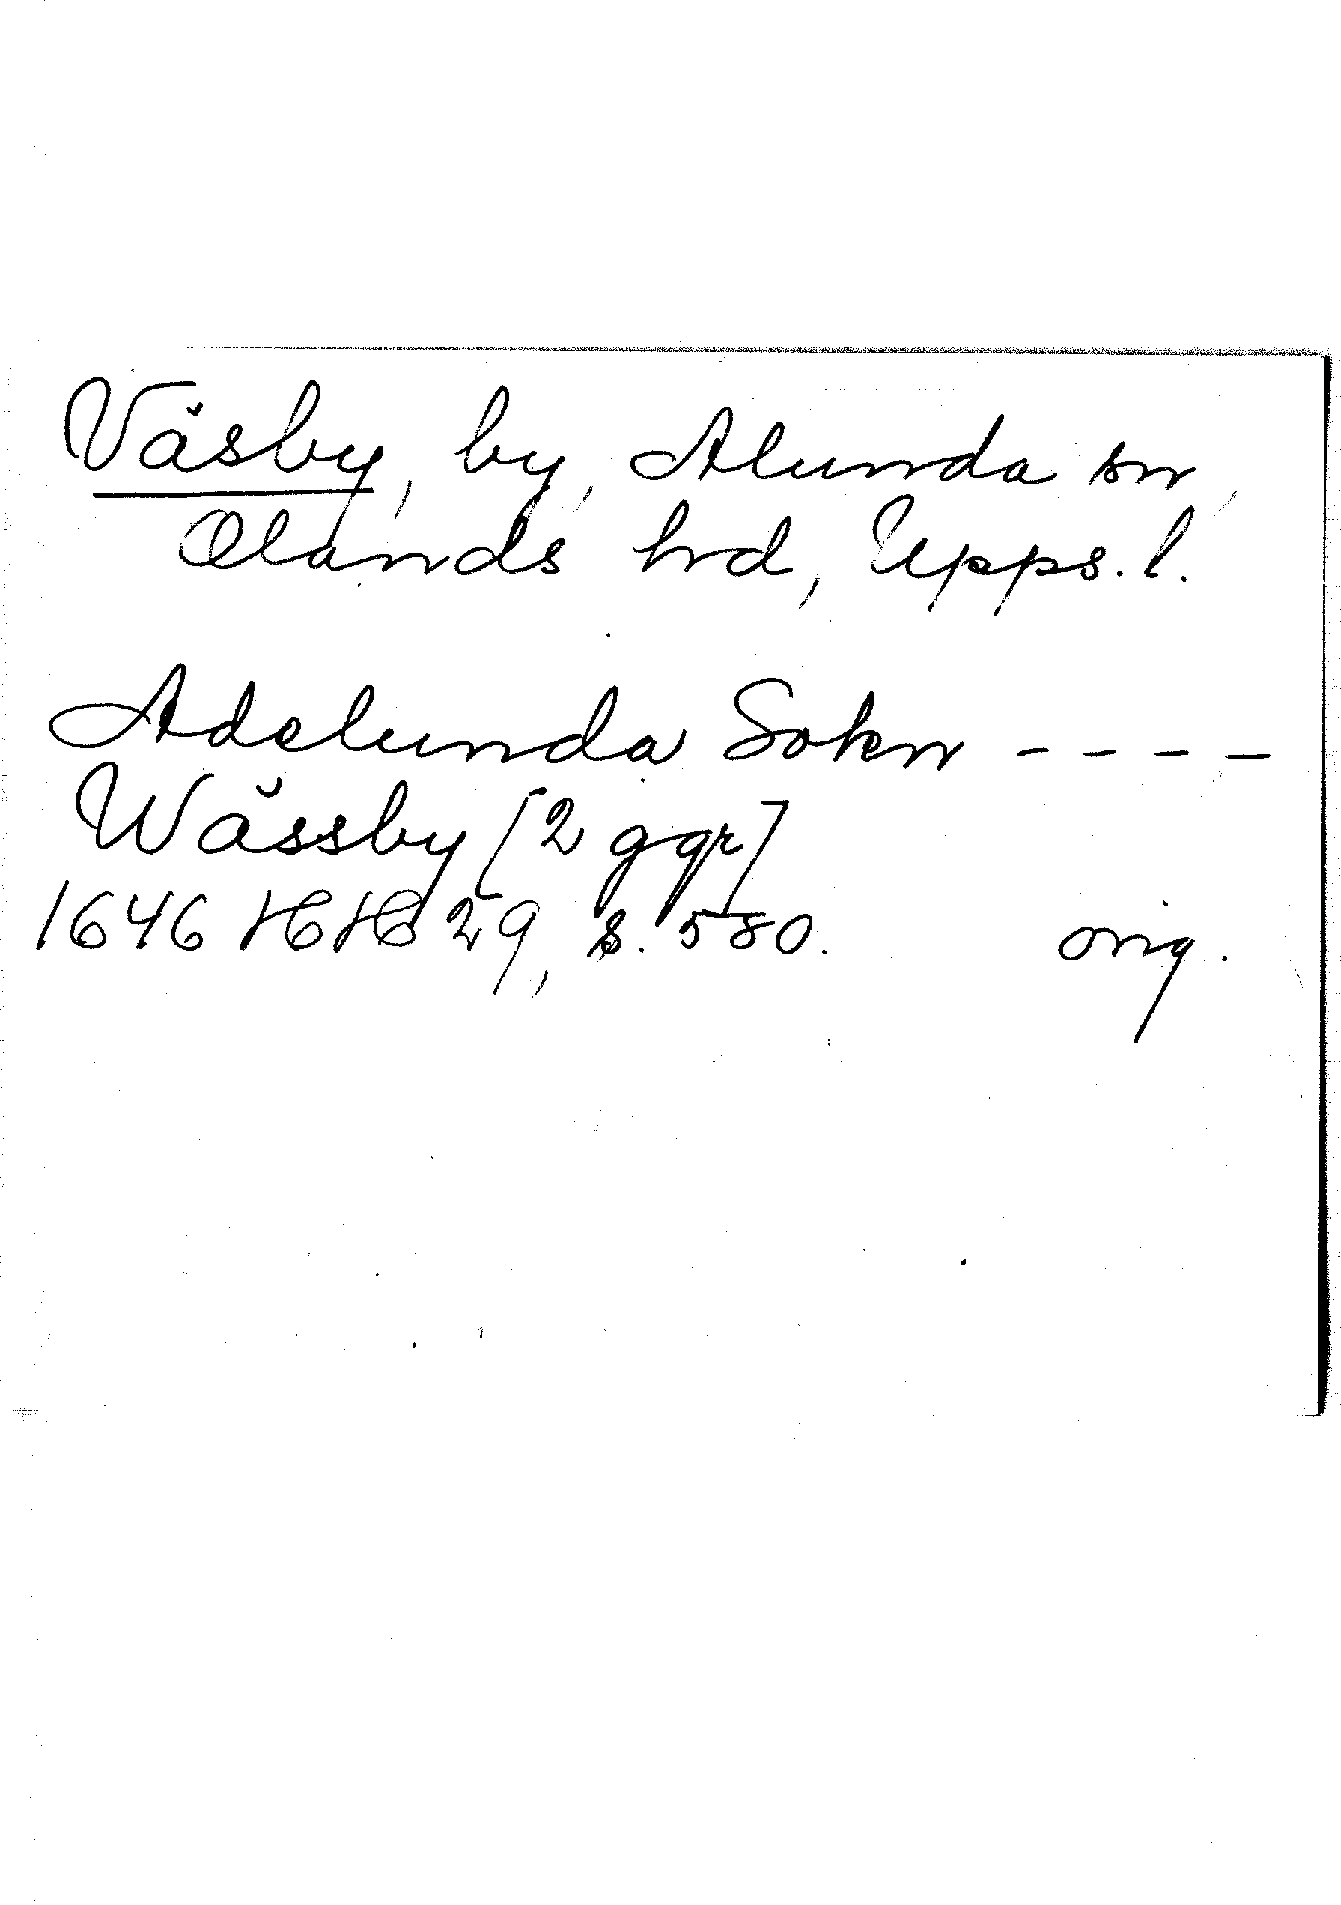 Väsby, by, Alunda sn,
Olands hd, Upps. l.
Adelunda Sokn - - - -
Wässby [2 ggr]
1646 HH 29, s. 580. orig.